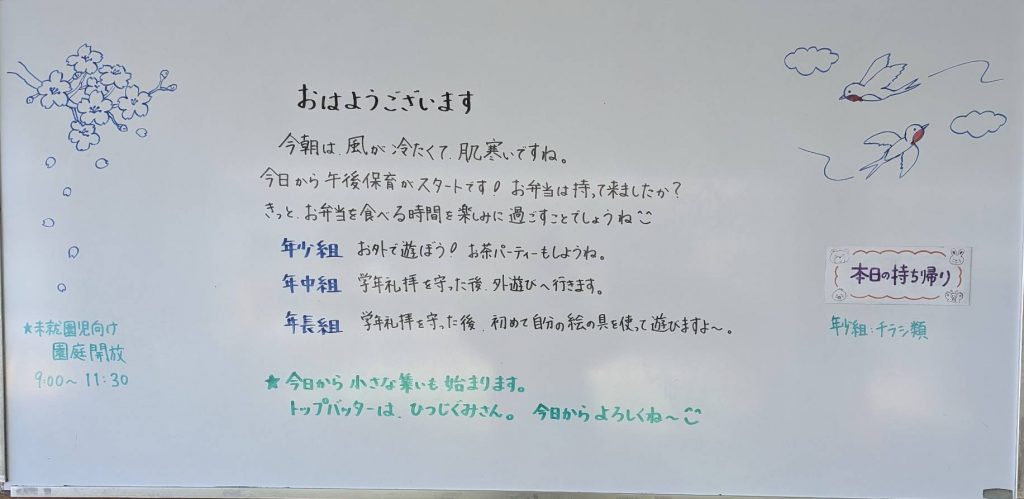 おはようございます
今朝は、風が冷たくて、肌寒いですね。
今日から午後保育がスタートです! お弁当は持って来ましたか?
きっと、お弁当を食べる時間を楽しみに過ごすことでしょうね
年少組 お外で遊ぼう! お茶パーティーもしようね。
年中組 学年礼拝を守った後、外遊びへ行きます。
年長組 学年礼拝を守った後、初めて自分の絵の具を使って遊びますよ〜。
★今日から小さな集いも始まります。
トップバッターは、ひつじぐみさん。 今日からよろしくね〜
★未就園児向け
園庭開放
9:00〜11:30
本日の持ち帰り
年少組:チラシ類